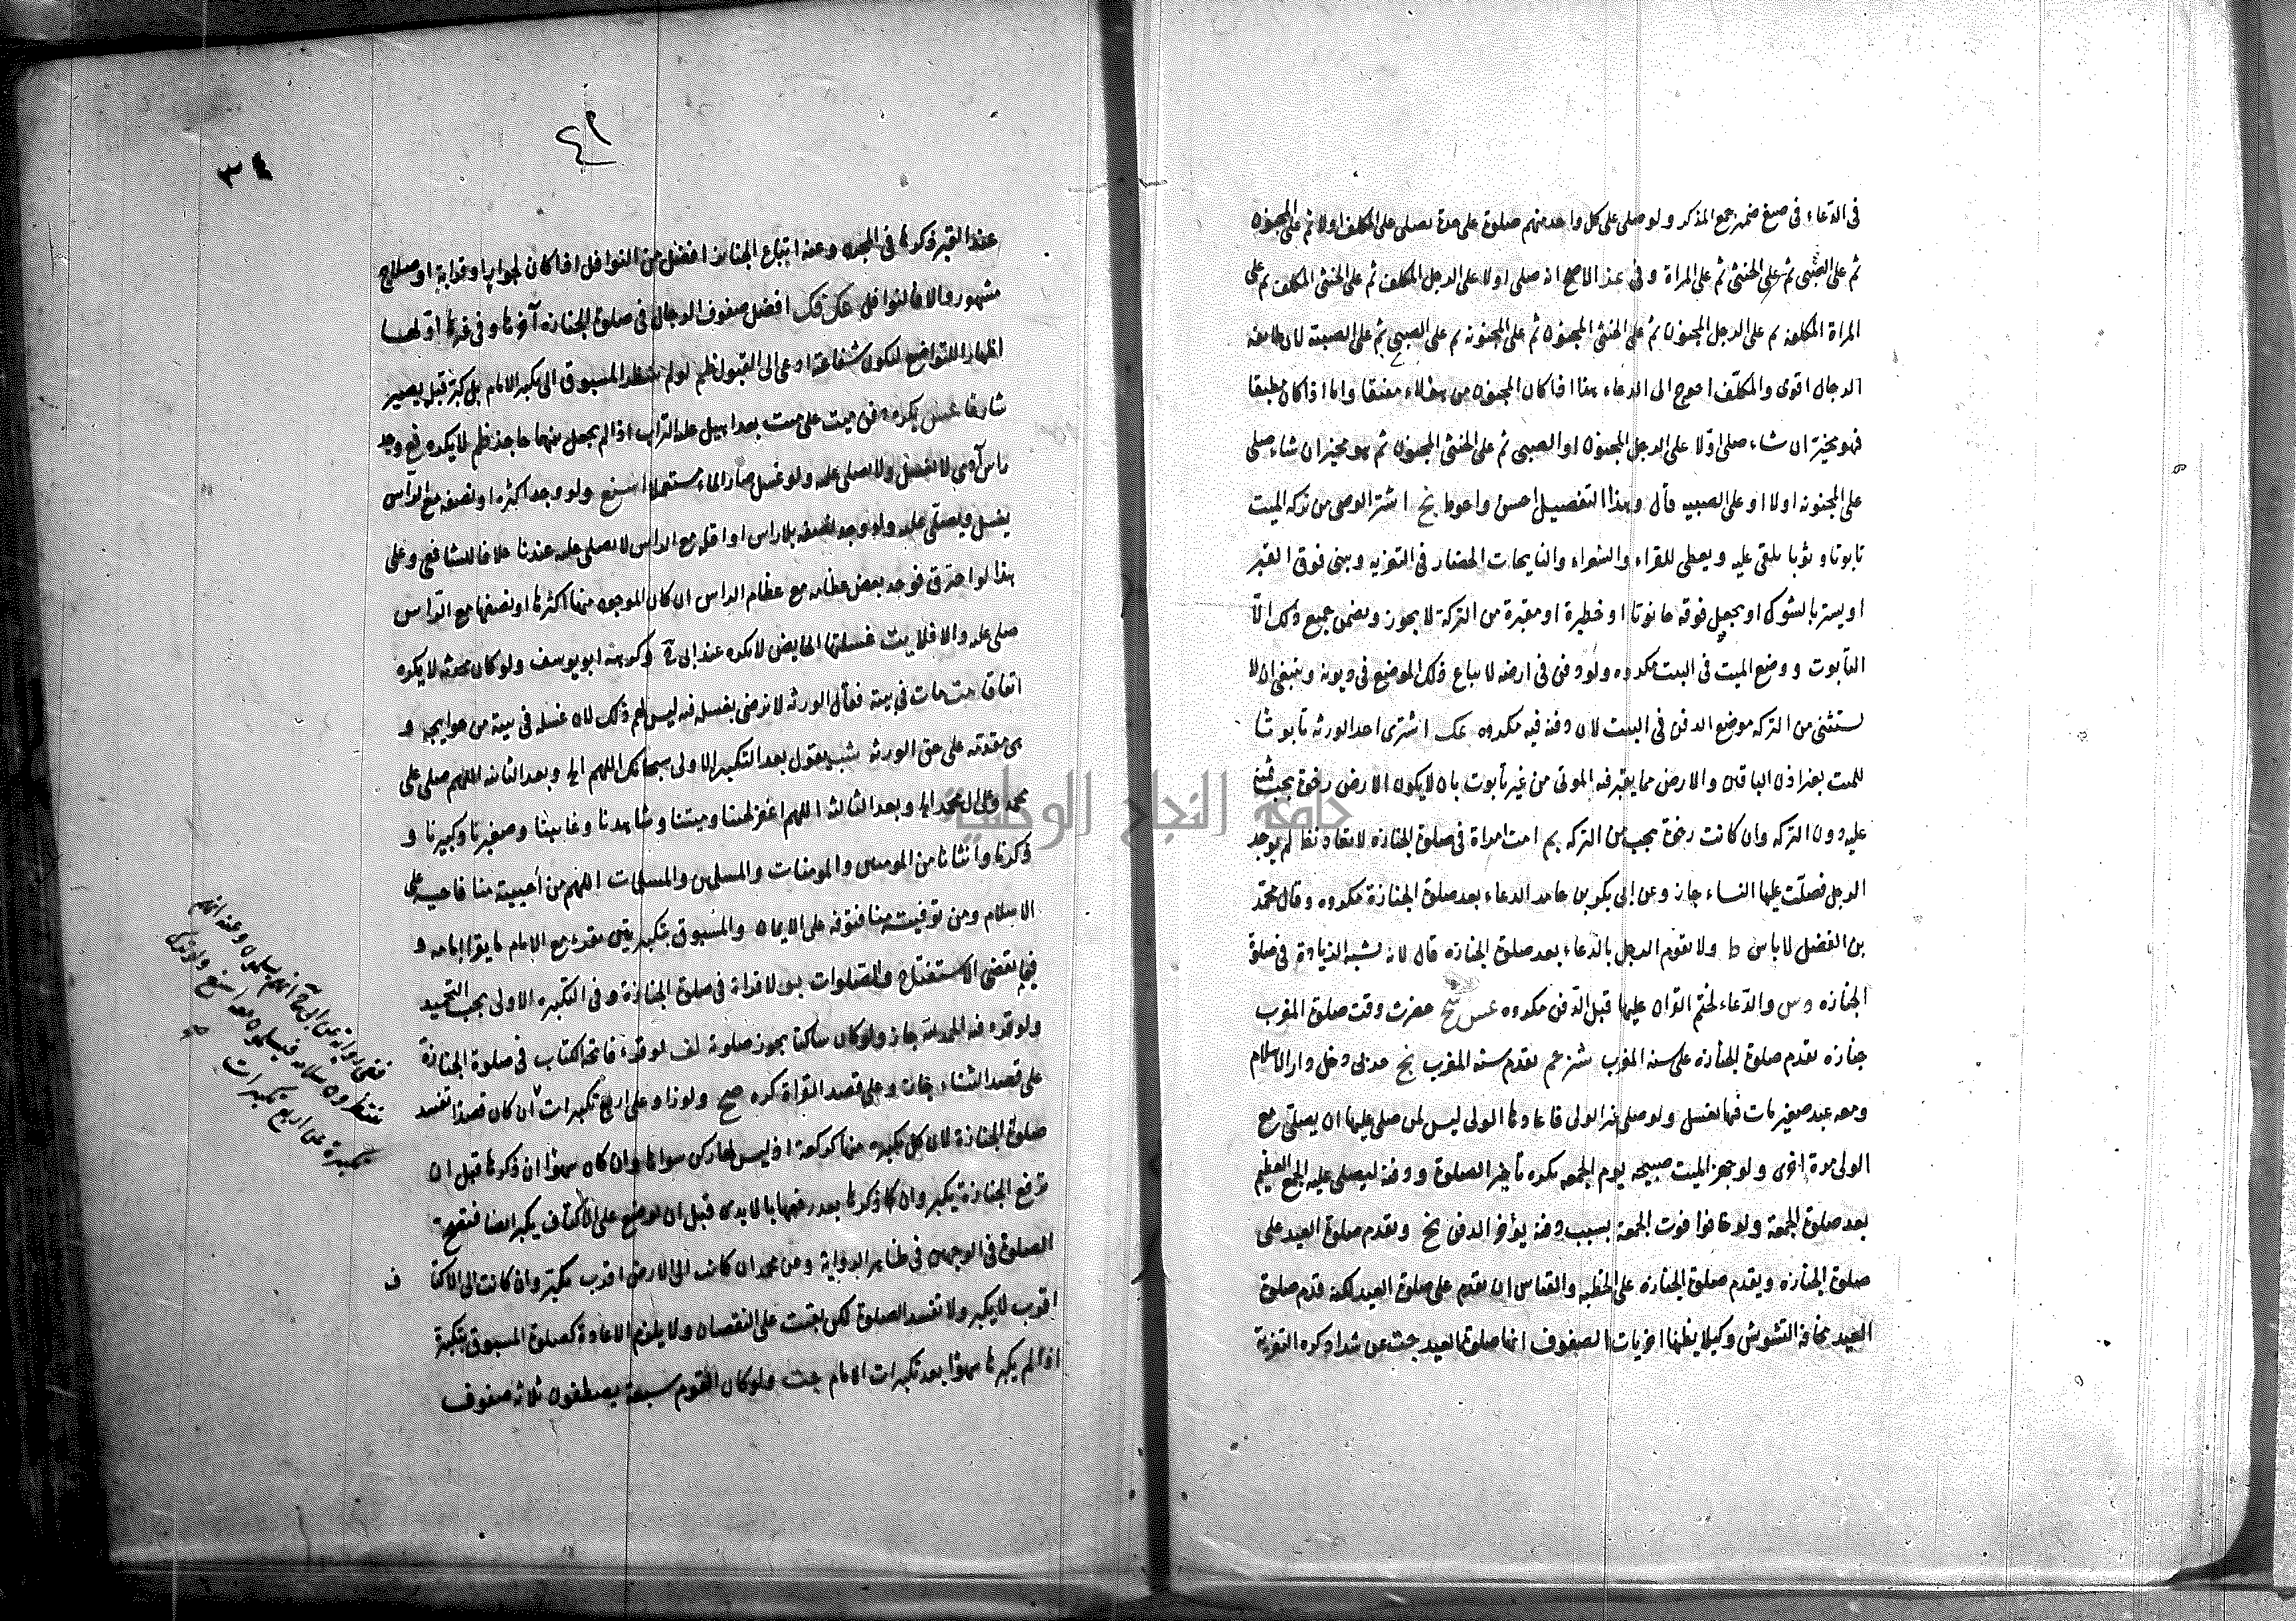 في الدعاء في صيغ ضمير جمع المذكر ولو صلى على كل واحد منهم صلوة على حدة يصلى على المكلف اولا ثم على المجنون
ثم على الصبى ثم على الخنثى ثم على المراة وفي عند الاصح انه صلى اولا على الرجل المكلف ثم على الخنثى المكلف ثم على
المراة المكلفه ثم على الرجل المجنون ثم على الخنثى المجنون ثم على المجنونه ثم على الصبى ثم على الصبية لان
الرجال اقوى والمكلف احوج الى الدعاء هذا اذا كان المجنون من هؤلاء مفيقا واما اذا كان مطبقا
فهو مخير ان شاء صلى اولا على الرجل المجنون او الصبى ثم على الخنثى المجنون ثم هو مخير ان شاء صلى
على المجنونه اولا او على الصبيه قال وهذا التفصيل احسن واحوط بخ اشترى الوصى من تركة الميت
تابوتا وثوبا يلقى عليه ويعطى للقراء والشعراء والنايحات الحضار في التعزية ويبنى فوق القبر
او يستر بالشوك او يجعل فوقه حانوتا او حظيرة او مقبرة من التركة لا يجوز ويضمن جميع ذلك الا
التابوت ووضع الميت في البيت مكروه ولو دفن في ارضه لا يباع ذلك الموضع في ديونه وينبغى ان لا
يستثنى من التركه موضع الدفن في البيت لان دفنه فيه مكروه عك اشترى احد الورثه تابوتا
للميت بغير اذن الباقين والارض مما يقبر فيه الموتى من غير تابوت بان لا يكون الارض رخوة يجب ثمنه
عليه دون التركه وان كانت رخوة يجب من التركه بم امت امراة في صلوة الجنازه لا تعاد نظ لم يوجد
الرجل فصلت عليها النساء جاز وعن ابى بكر بن حامد الدعاء بعد صلوة الجنازة مكروه وقال محمد
بن الفضل لا باس ط ولا يقوم الرجل بالدعاء بعد صلوة الجنازه قال لانه يشبه الزيادة في صلوة
الجنازه وس والدعاء لختم القران عليها قبل الدفن مكروه عس شح حضرت وقت صلوة المغرب
جنازه يقدم صلوة الجنازه على سنة المغرب شز عم يقدم سنة المغرب بخ حربى دخل دار الاسلام
ومعه عبد صغير مات فيها يغسل ولو صلى غير الولى فاعادها الولى ليس لمن صلى عليها ان يصلى مع
الولى مرة اخرى ولو جهز الميت صبيحة يوم الجمعه يكره تاخير الصلوة ودفنه ليصلى عليه الجمع العظيم
بعد صلوة الجمعة ولو خافوا فوت الجمعة بسبب دفنه يؤخر الدفن بخ وتقدم صلوة العيد على
صلوة الجنازه ويقدم صلوة الجنازه على الخطبه والقياس ان يقدم على صلوة العيد لكنه قدم صلوة
العيد مخافة التشويش وكيلا يظنها اخريات الصفوف انها صلوة العيد جت عن شداد كره التعزية
٤١
٣٤
عند القبر ذكرها في المجرد وعنه اتباع الجنازة افضل من النوافل اذا كان لجوار او قرابة او صلاح
مشهور والا فالنوافل عك فك افضل صفوف الرجال في صلوة الجنازه آخرها وفي غيرها اولها
اظهارا للتواضع ليكون شفاعته ادعى الى القبول ظم لو لم ينتظر المسبوق الى تكبير الامام بل كبر قبل يصير
شارعا عس يكره دفن ميت على ميت بعد اهيل عليه التراب اذا لم يجعل بينهما حاجز ظم لا يكره فع وجد
راس آدمى لا يغسل ولا يصلى عليه ولو غسل صار الماء مستعملا اسنع ولو وجد اكثره او نصفه مع الراس
يغسل ويصلى عليه ولو وجد نصفه بلا راس او اقله مع الراس لا يصلى عليه عندنا خلافا للشافعى وعلى
هذا لو احترق فوجد بعض عظامه مع عظام الراس ان كان الموجود منها اكثرها او نصفها مع الراس
صلى عليه والا فلا يث غسلتها الحايض لا يكره عند ابى ح وكرهه ابو يوسف ولو كان محدثه لا يكره
اتفاقا مت مات في بيته فقال الورثه لا نرضى بغسله فيه ليس لهم ذلك لان غسله في بيته من حوايجه و
هى مقدمة على حق الورثه شب يقول بعد التكبير الاولى سبحانك اللهم الخ وبعد الثانيه اللهم صلى على
محمد وعلى ال محمد الخ وبعد الثالثه اللهم اغفر لحينا وميتنا وشاهدنا وغايبنا وصغيرنا وكبيرنا و
ذكرنا وانثانا من المومنين والمومنات والمسلمين والمسلمات اللهم من أحييته منا فاحيه على
الاسلام ومن توفيته منا فتوفه على الايمان والمسبوق بتكبيرتين يقرء مع الامام ما يقرا امامه و
فيما يقضى الاستفتاح والصلوات بو لا قراة في صلوة الجنازة وفي التكبيره الاولى يجب التحميد
ولو قرء فيه الحمد لله جاز ولو كان ساكتا يجوز صلوته لف لو قرء فاتحة الكتاب في صلوة الجنازة
على قصد الثناء جاز وعلى قصد القراة كره صح ولو زاد على اربع تكبيرات ان كان قصدا تفسد
صلوة الجنازة لان كل تكبيرة منها كركعة اذ ليس لها ركن سواها وان كان سهوا ان ذكرها قبل ان
ترفع الجنازة يكبر وان ذكرها بعد رفعها بالايدى قبل ان توضع على الاكتاف يكبر ايضا فتصح
الصلوة في الوجهين في ظاهر الرواية وعن محمد ان كانت الى الارض اقرب يكبر وان كانت الى الاكتا ف
اقرب لا يكبر ولا تفسد الصلوة لكن بقيت على النقصان ولا يلزم الاعادة كصلوة المسبوق بتكبيرة
اذا لم يكبرها سهوا بعد تكبيرات الامام جت ولو كان القوم سبعة يصطفون ثلاثة صفوف